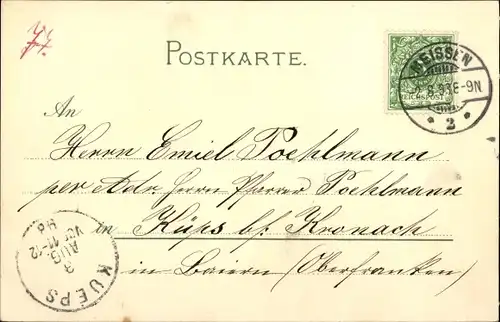 POSTKARTE.
MEISSEN
2.8.98.8-9N.
* 2 *
REICHSPOST
An
Herrn Emiel Poehlmann
per Adr. Herrn Pfarrer Poehlmann
in Küps bf. Kronach
in Baiern (Oberfranken)
KUEPS
3
AUG
VOR 11-12
98